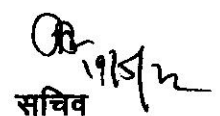 19/5/22
सचिव